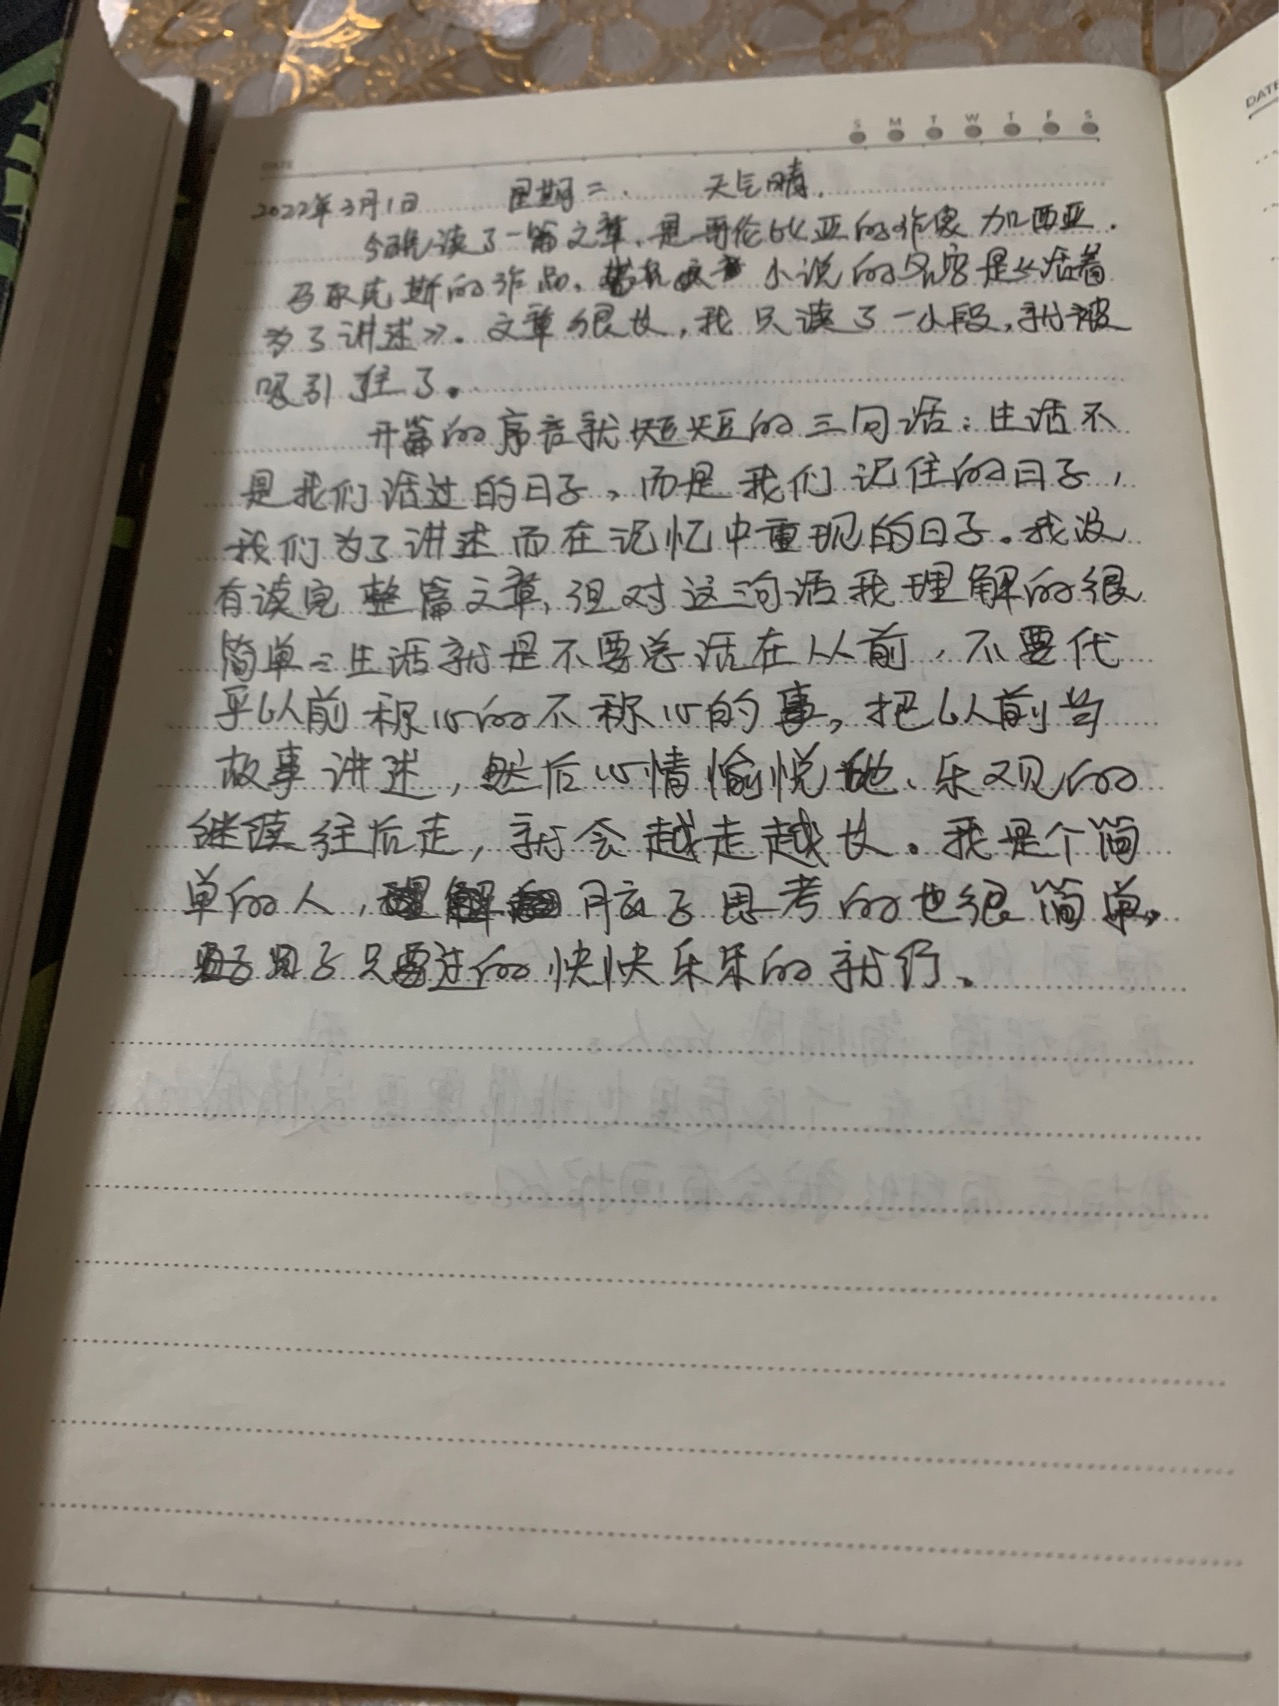 S M T W T F S
DATE
DATE
2022年3月1日 星期二. 天气晴.
今晚读了一篇文章,是哥伦比亚的作家加西亚.
马尔克斯的作品. 小说的名字是《活着
为了讲述》. 文章很长,我只读了一小段,就被
吸引住了.
开篇的序言就短短的三句话:生活不
是我们活过的日子,而是我们记住的日子,
我们为了讲述而在记忆中重现的日子.我没
有读完整篇文章,但对这三句话我理解的很
简单:生活就是不要总活在从前,不要代
乎以前称心的不称心的事,把以前当
故事讲述,然后心情愉悦地、乐观的
继续往后走,就会越走越长.我是个简
单的人, 脑子思考的也很简单,
只要过的快快乐乐的就行.